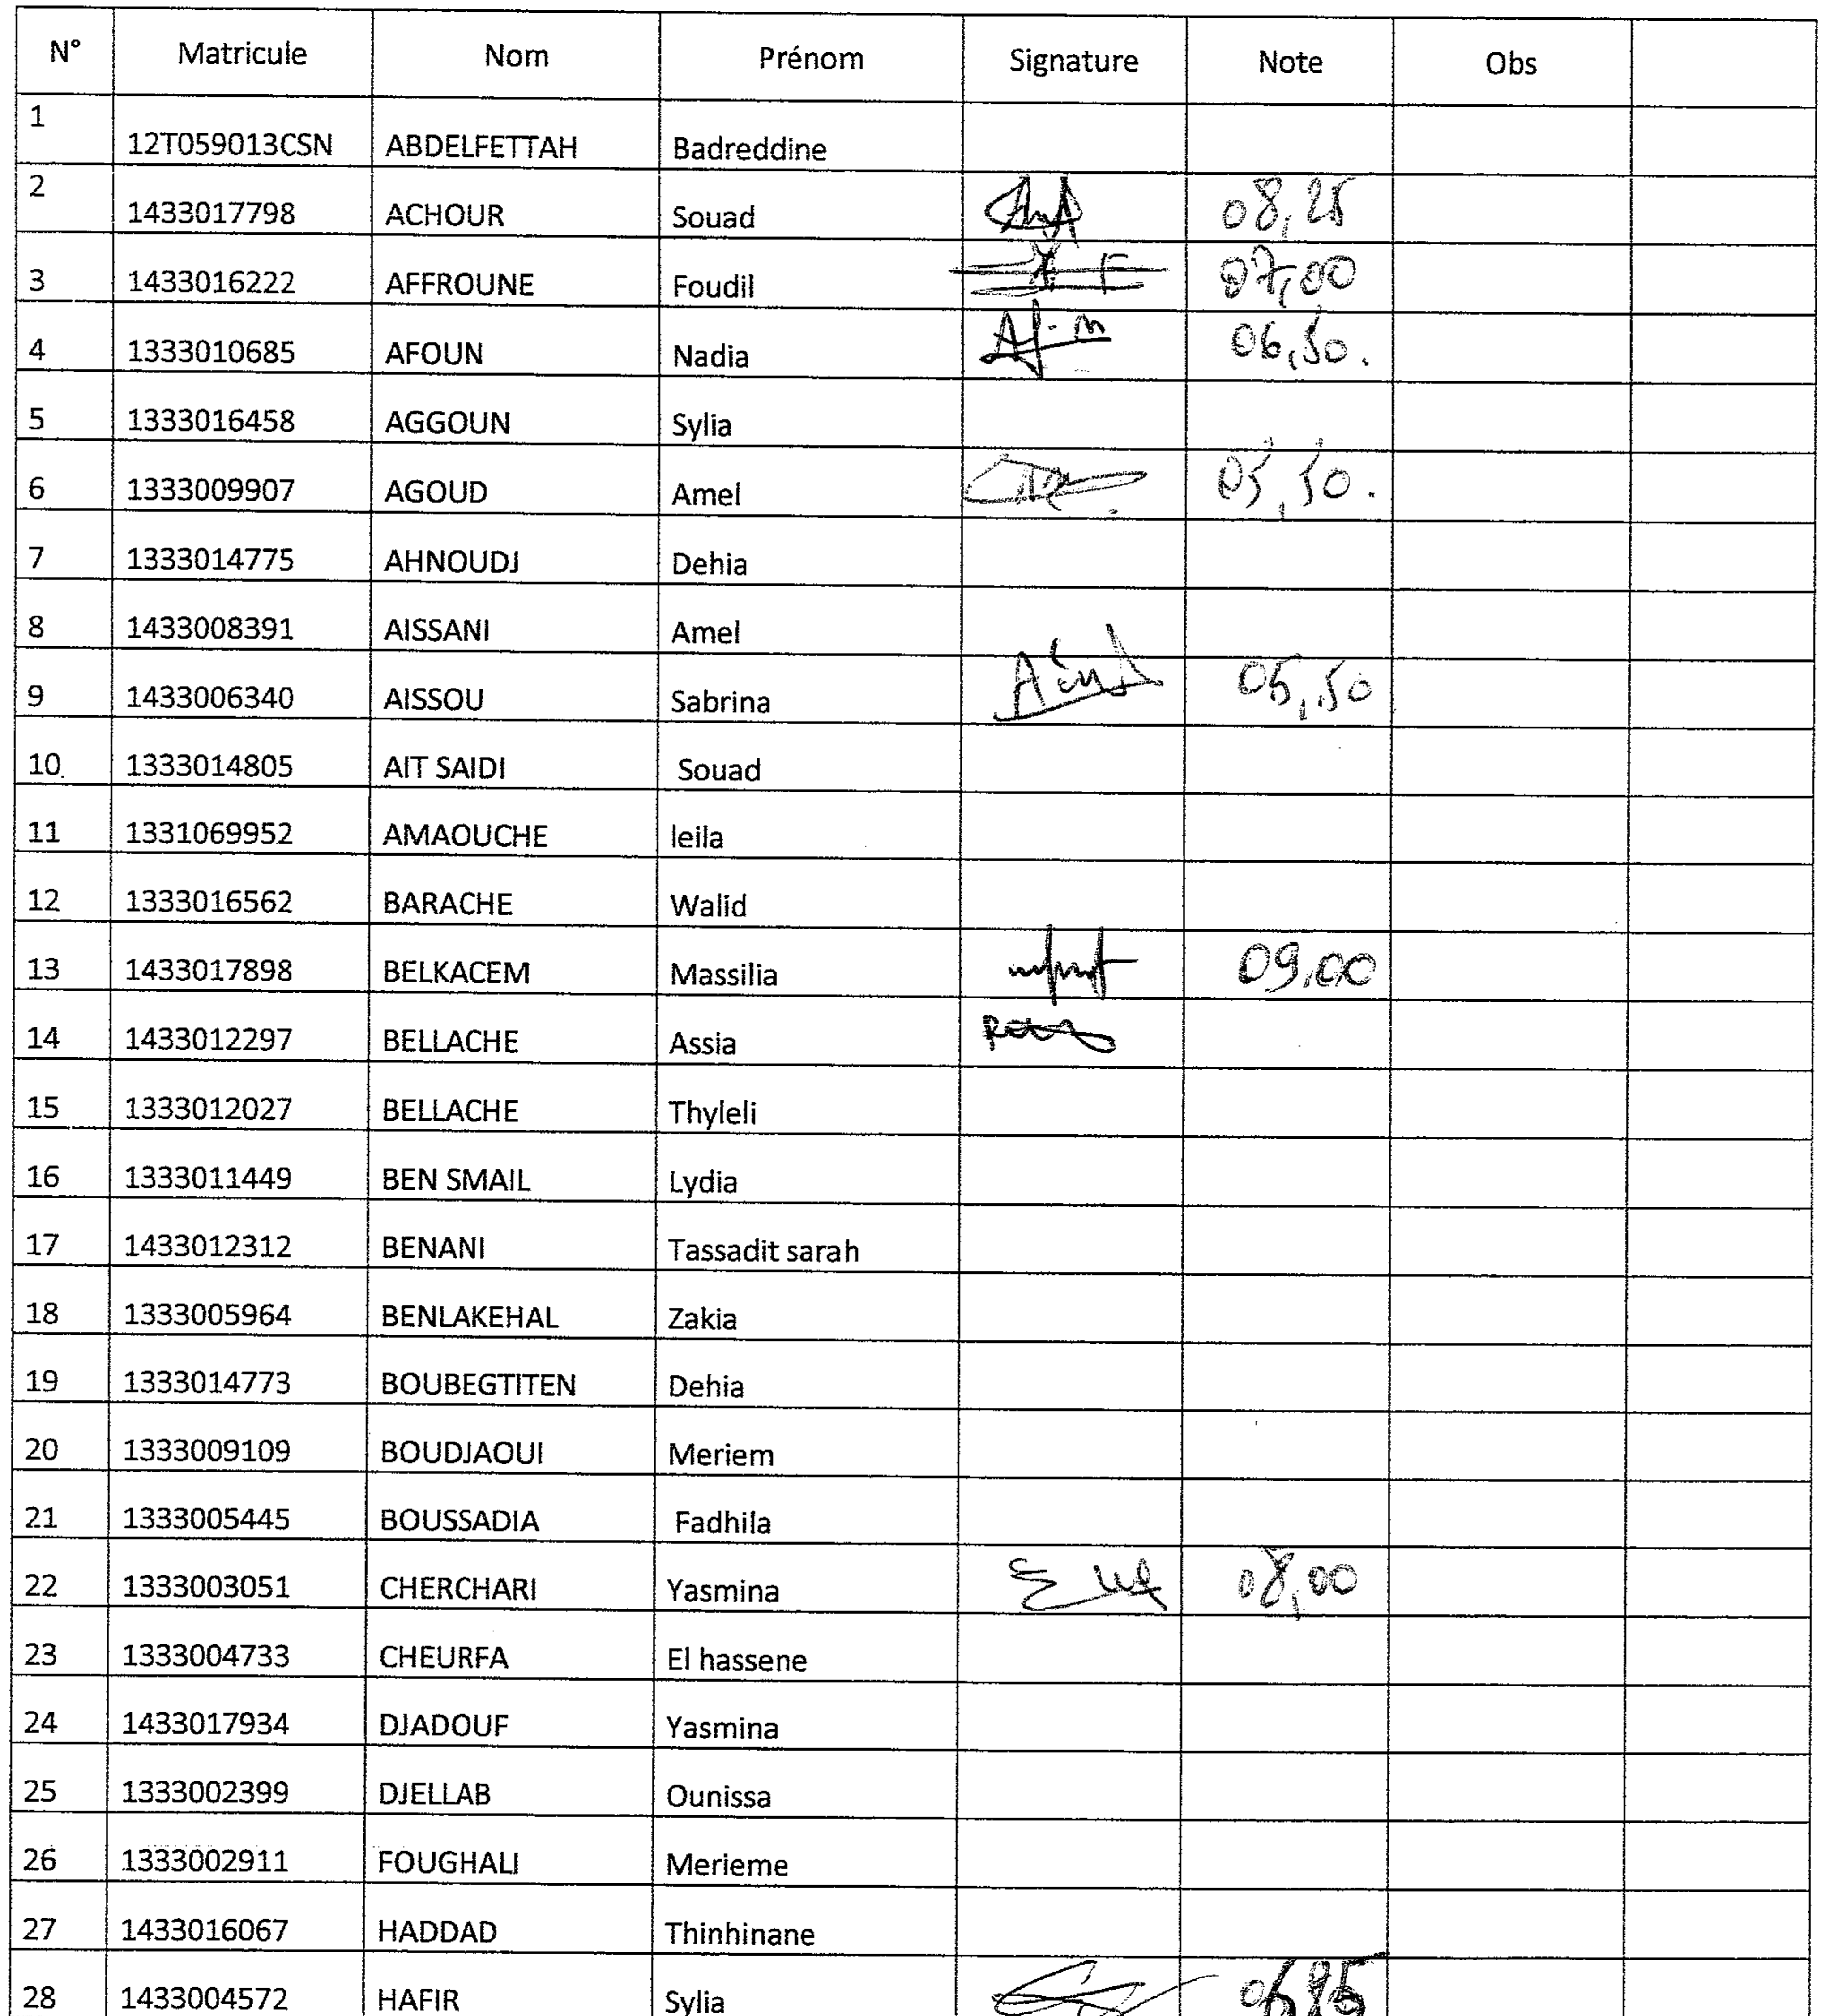 N° Matricule Nom Prénom Signature Note Obs
1 12T059013CSN ABDELFETTAH Badreddine
2 1433017798 ACHOUR Souad 08,25
3 1433016222 AFFROUNE Foudil 07,00
4 1333010685 AFOUN Nadia 06,50.
5 1333016458 AGGOUN Sylia
6 1333009907 AGOUD Amel 05,50.
7 1333014775 AHNOUDJ Dehia
8 1433008391 AISSANI Amel
9 1433006340 AISSOU Sabrina 05,50
10 1333014805 AIT SAIDI Souad
11 1331069952 AMAOUCHE leila
12 1333016562 BARACHE Walid
13 1433017898 BELKACEM Massilia 09,00
14 1433012297 BELLACHE Assia
15 1333012027 BELLACHE Thyleli
16 1333011449 BEN SMAIL Lydia
17 1433012312 BENANI Tassadit sarah
18 1333005964 BENLAKEHAL Zakia
19 1333014773 BOUBEGTITEN Dehia
20 1333009109 BOUDJAOUI Meriem
21 1333005445 BOUSSADIA Fadhila
22 1333003051 CHERCHARI Yasmina 08,00
23 1333004733 CHEURFA El hassene
24 1433017934 DJADOUF Yasmina
25 1333002399 DJELLAB Ounissa
26 1333002911 FOUGHALI Merieme
27 1433016067 HADDAD Thinhinane
28 1433004572 HAFIR Sylia